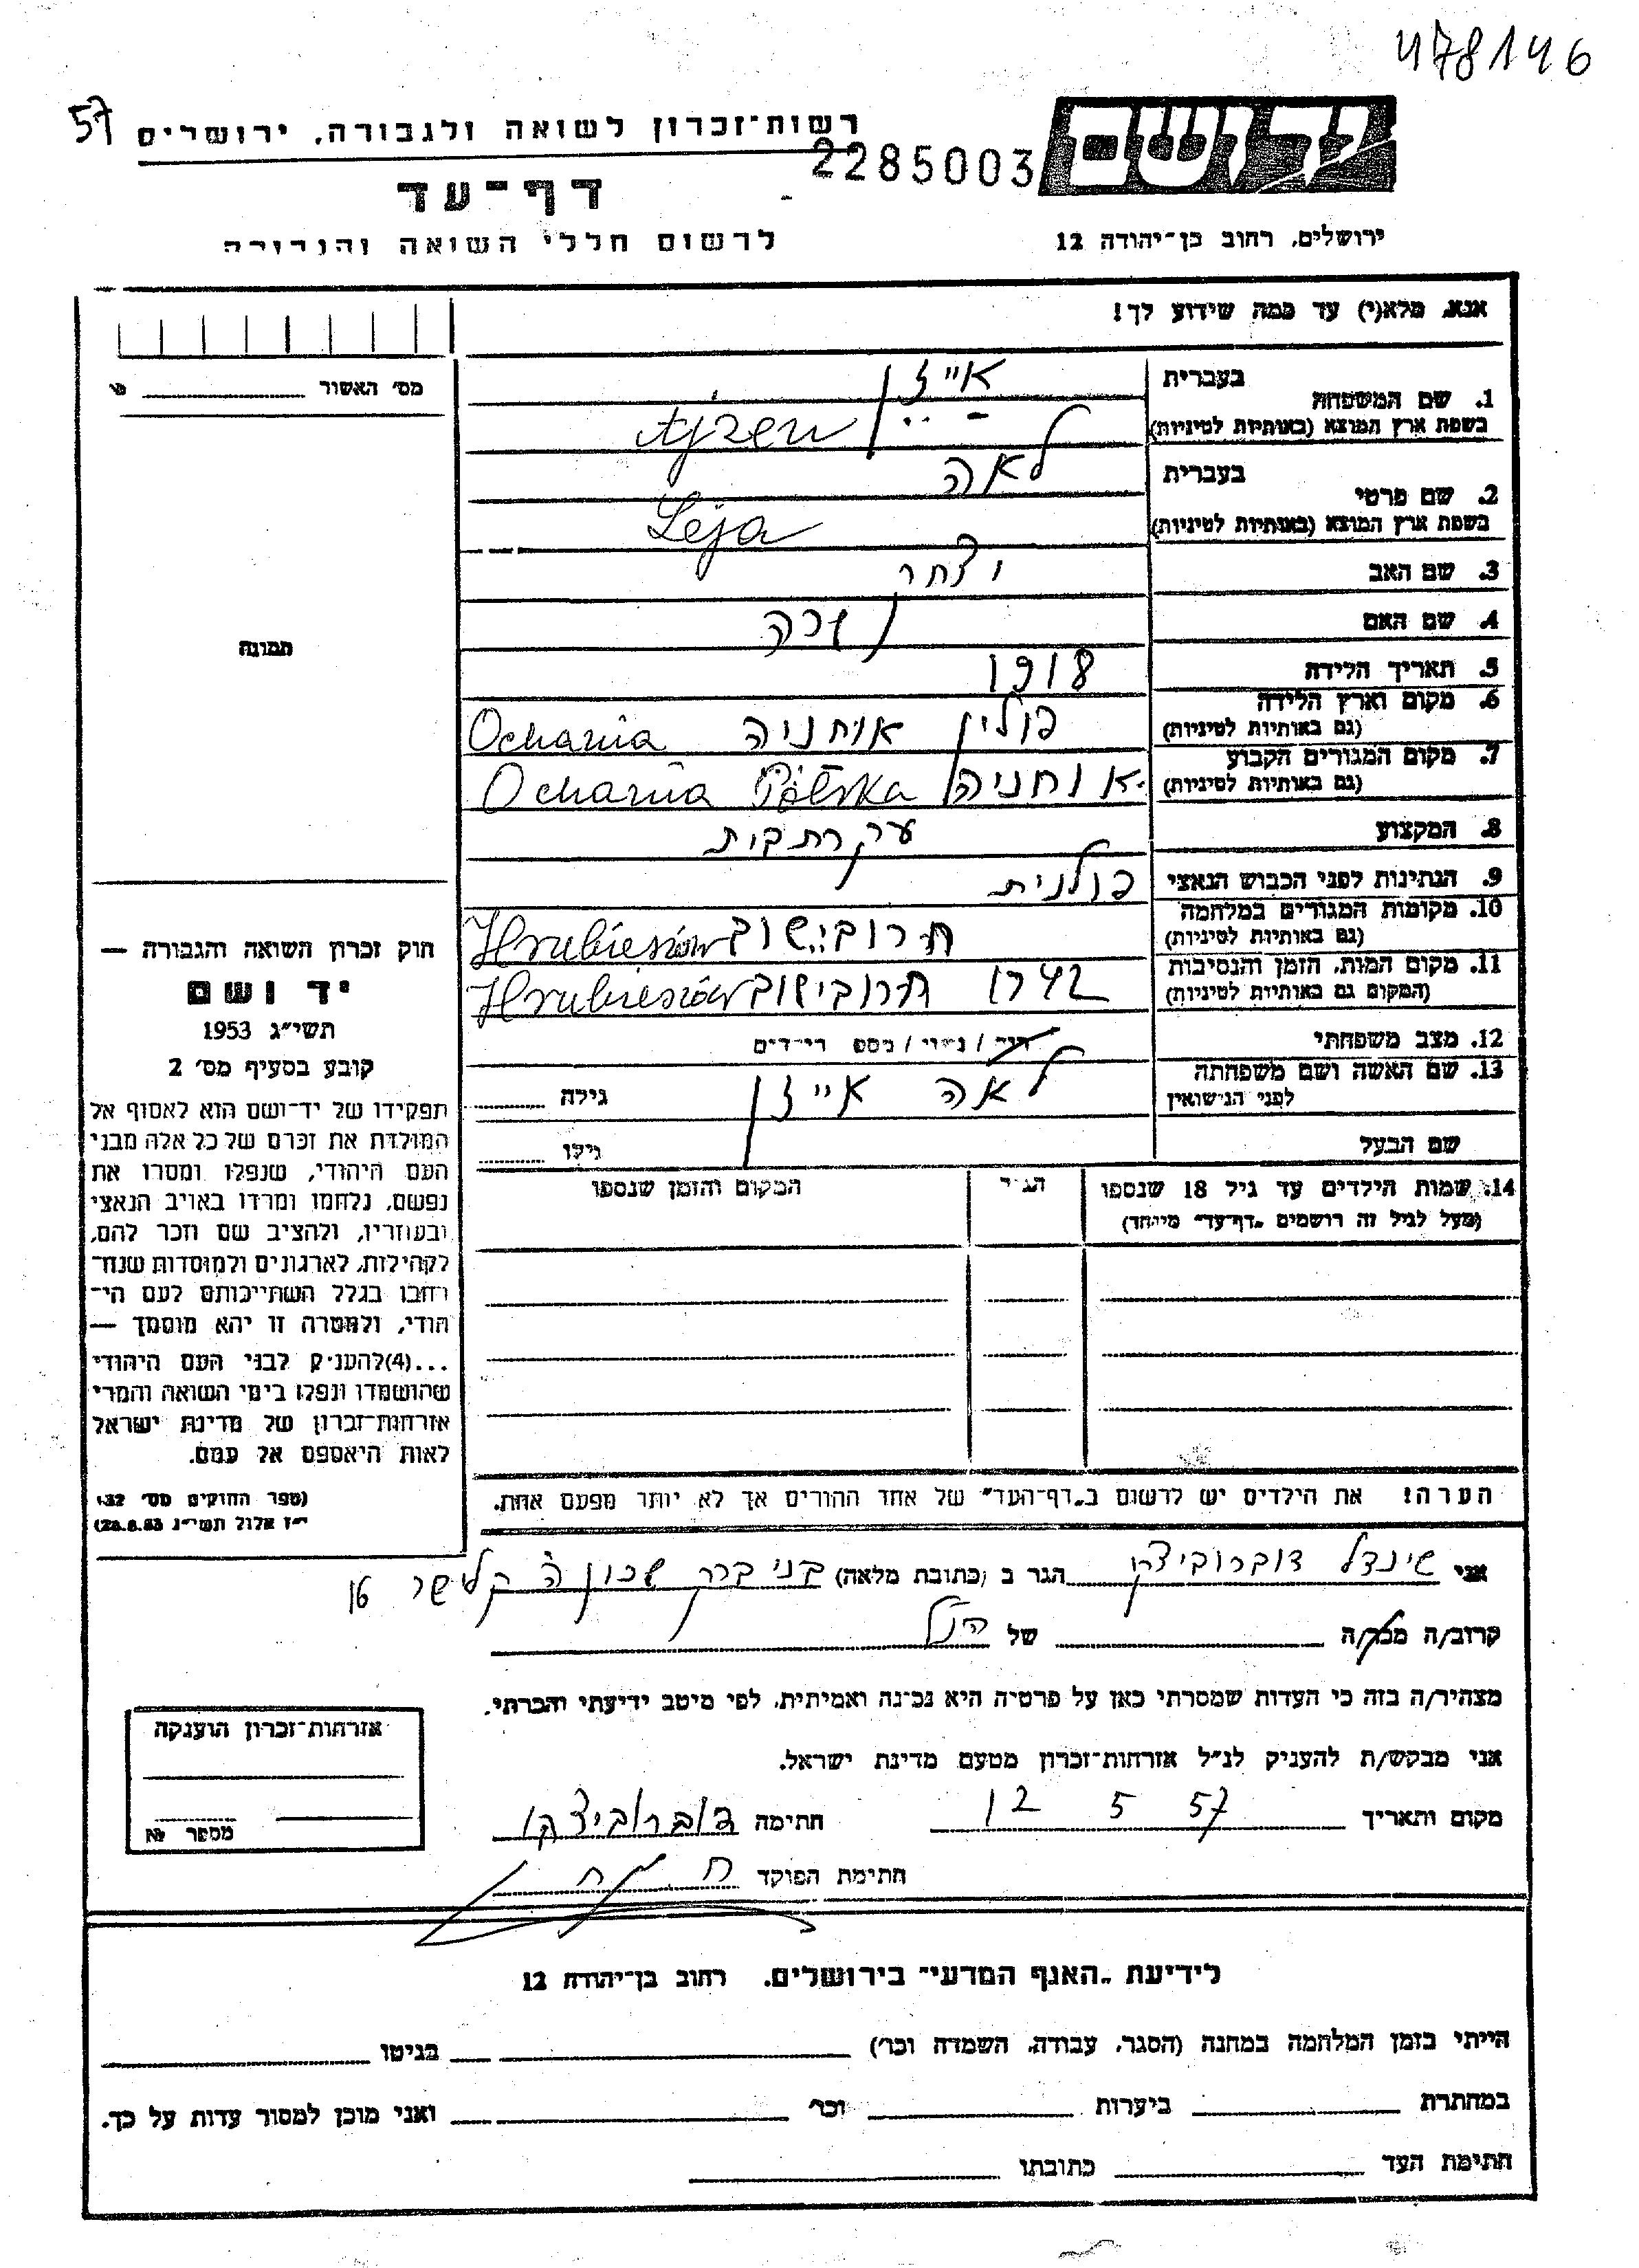 478146
57
רשות־זכרון לשואה ולגבורה, ירושלים
2285003
יד ושם
דף־עד
לרשום חללי השואה והגבורה
ירושלים, רחוב בן־יהודה 12
אנא, מלא(י) עד כמה שידוע לך!
מס׳ האשור
1. שם המשפחה
בעברית
אייזן
בשפת ארץ המוצא (באותיות לטיניות)
Ajzen
2. שם פרטי
בעברית
לאה
בשפת ארץ המוצא (באותיות לטיניות)
Leja
3. שם האב
4. שם האם
שרה
תמונה
5. תאריך הלידה
1918
6. מקום וארץ הלידה
(גם באותיות לטיניות)
פולין אוחניה Ochania
7. מקום המגורים הקבוע
(גם באותיות לטיניות)
אוחניה Ochania Polska
8. המקצוע
עקרת בית
9. הנתינות לפני הכבוש הנאצי
פולנית
10. מקומות המגורים במלחמה
(גם באותיות לטיניות)
הרוביישוב Hrubieszów
11. מקום המות, הזמן והנסיבות
(המקום גם באותיות לטיניות)
1942 הרובישוב Hrubieszów
12. מצב משפחתי
רוק / נשוי / מספ׳ הילדים
13. שם האשה ושם משפחתה
לפני הנישואין
לאה אייזן
גילה
שם הבעל
גילו
14. שמות הילדים עד גיל 18 שנספו
(מעל לגיל זה רושמים „דף־עד" מיוחד)
הגיל
המקום והזמן שנספו
הערה! את הילדים יש לרשום ב„דף־העד" של אחד ההורים אך לא יותר מפעם אחת.
חוק זכרון השואה והגבורה —
יד ושם
תשי״ג 1953
קובע בסעיף מס׳ 2
תפקידו של יד־ושם הוא לאסוף אל
המולדת את זכרם של כל אלה מבני
העם היהודי, שנפלו ומסרו את
נפשם, נלחמו ומרדו באויב הנאצי
ובעוזריו, ולהציב שם וזכר להם,
לקהילות, לארגונים ולמוסדות שנח־
רבו בגלל השתייכותם לעם הי־
הודי, ולמטרה זו יהא מוסמך —
...(4)להעניק לבני העם היהודי
שהושמדו ונפלו בימי השואה והמרי
אזרחות־זכרון של מדינת ישראל
לאות היאספם אל עמם.
(ספר החוקים מס׳ 132
י״ז אלול תשי״ג 28.8.53)
אני שינדל דוברוביצקי הגר ב (כתובת מלאה) בני ברק שכון ה קלישר
קרוב/ה מכר/ה של הנ״ל
מצהיר/ה בזה כי העדות שמסרתי כאן על פרטיה היא נכונה ואמיתית, לפי מיטב ידיעתי והכרתי.
אני מבקש/ת להעניק לנ״ל אזרחות־זכרון מטעם מדינת ישראל.
מקום ותאריך 12 5 57 חתימה דוברוביצקי
חתימת הפוקד
אזרחות־זכרון הוענקה
מספר №
לידיעת „האגף המדעי" בירושלים, רחוב בן־יהודה 12
הייתי בזמן המלחמה במחנה (הסגר, עבודה, השמדה וכו׳) בגיטו
במחתרת ביערות וכו׳ ואני מוכן למסור עדות על כך.
חתימת העד כתובתו